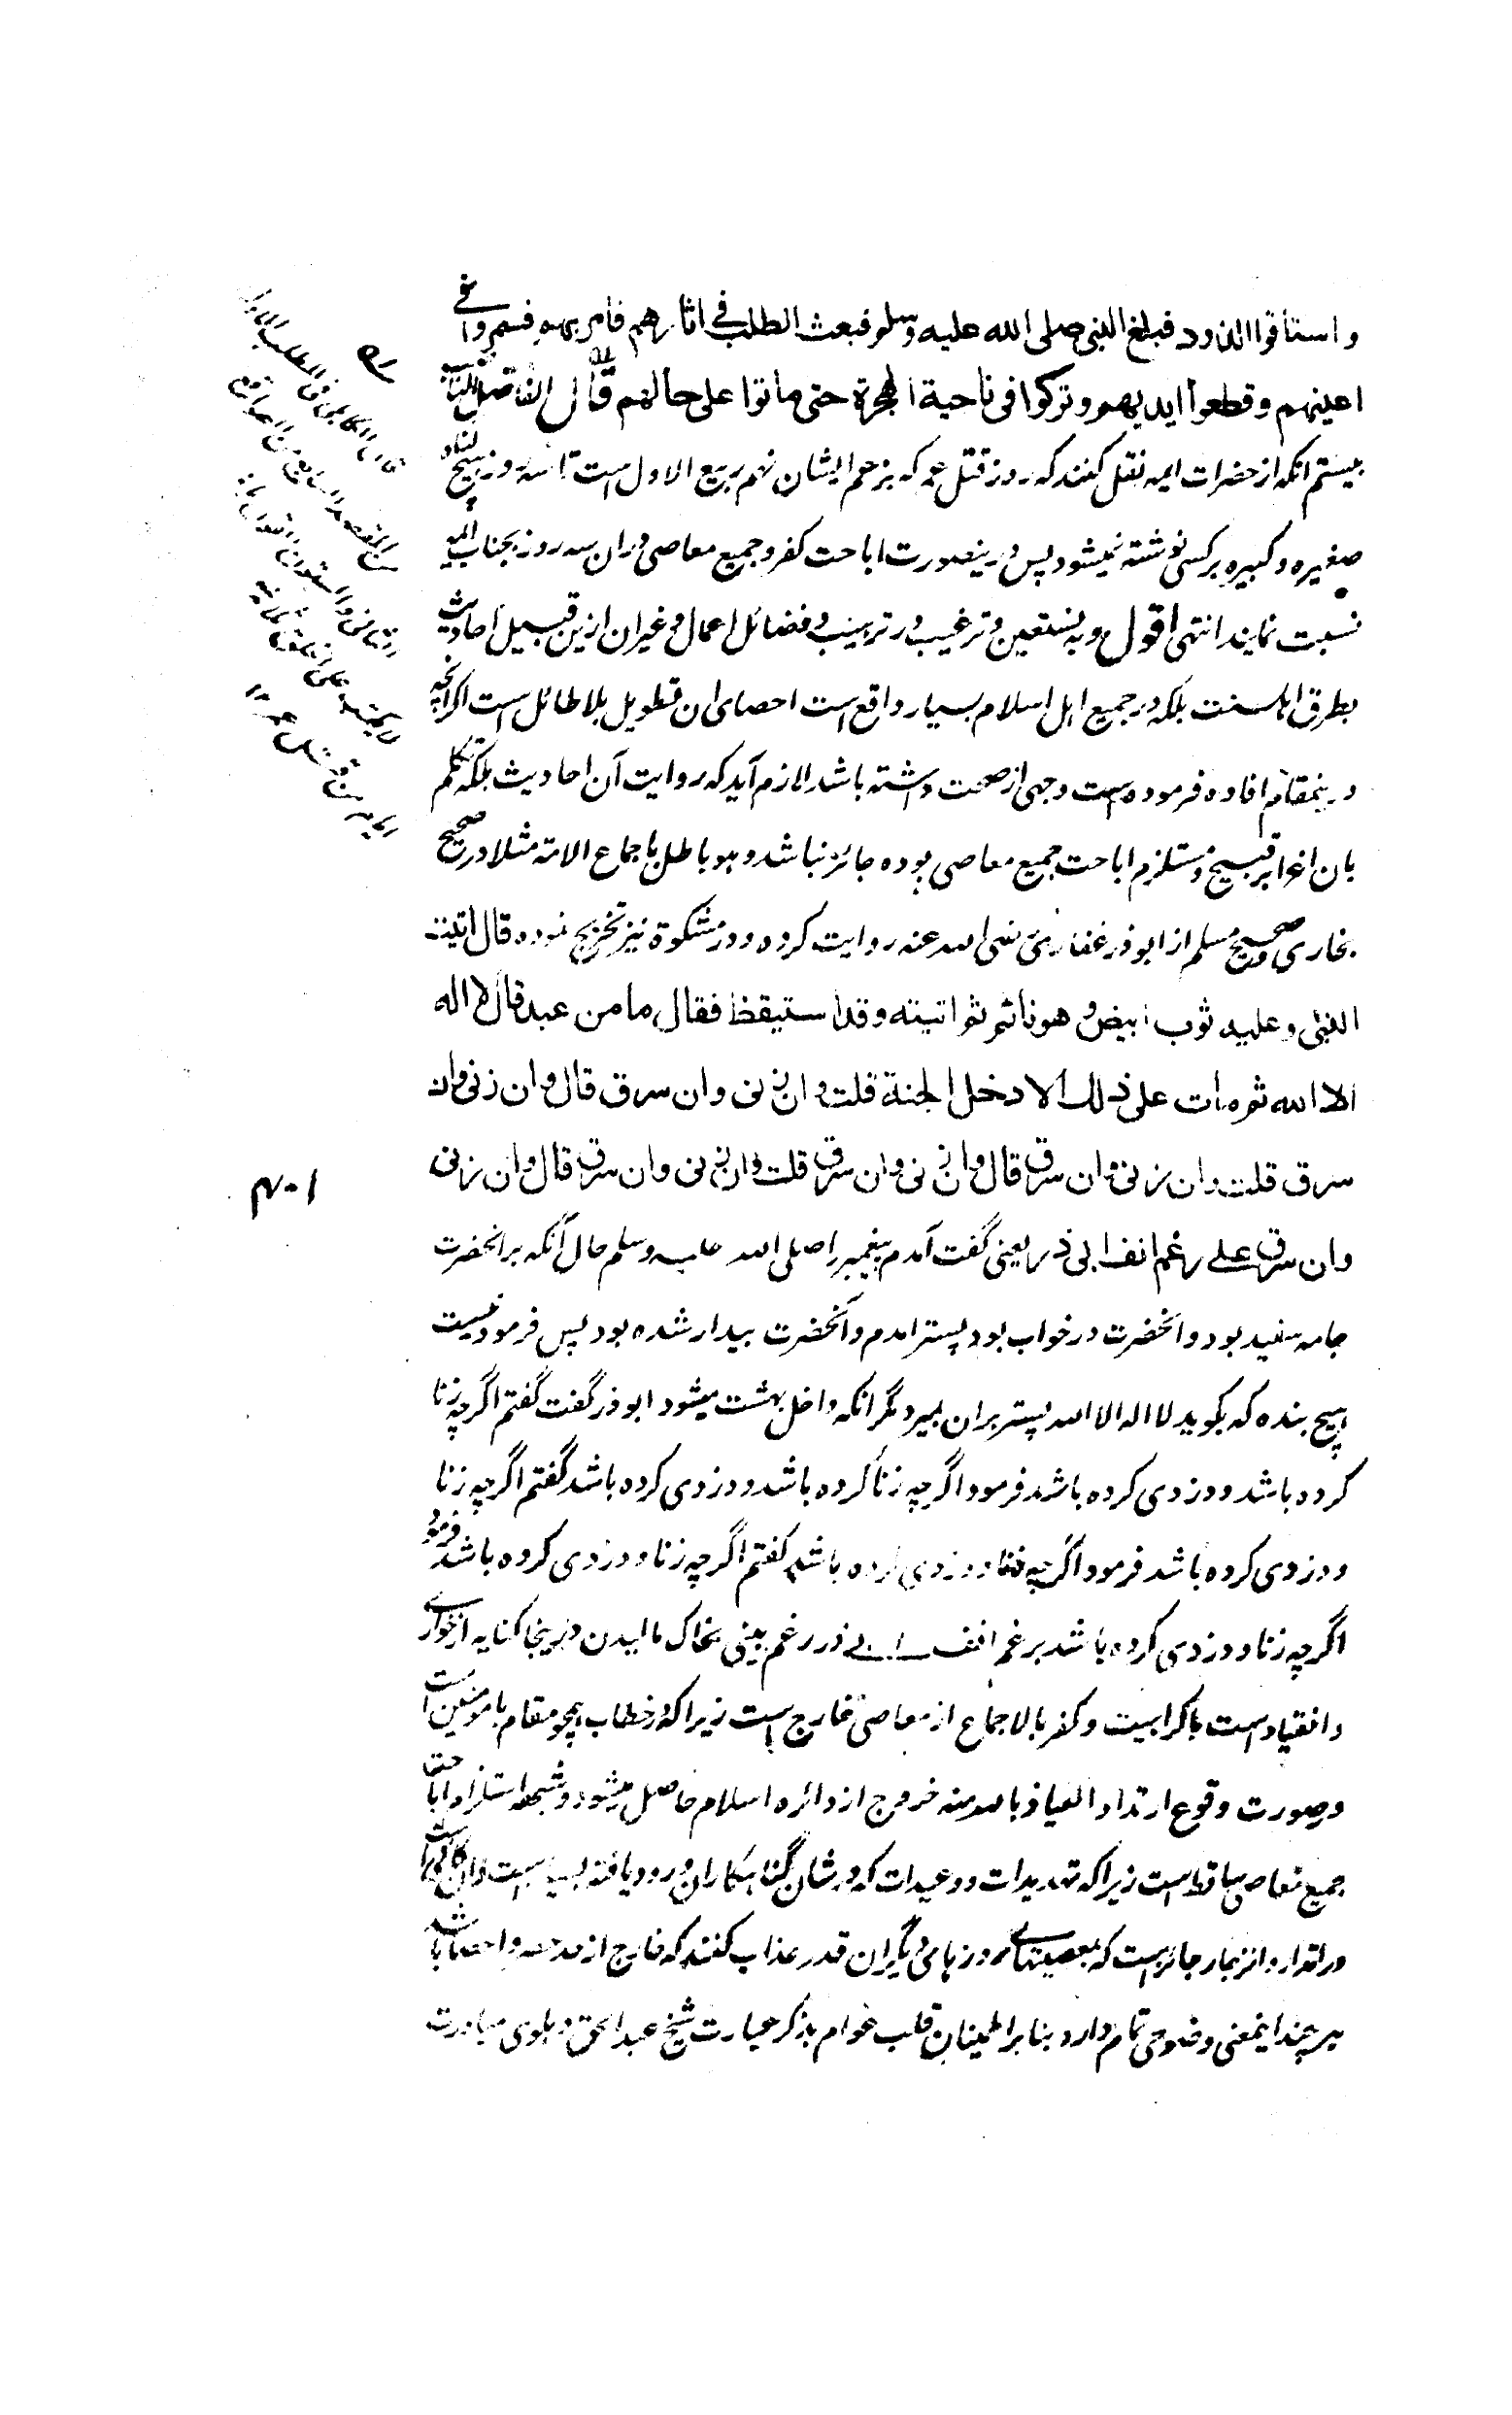 واستاقوا الذود فبلغ النبی صلی الله علیه وسلم فبعث الطلب فی اثارهم فامر بهم فسمروا
اعینهم وقطعوا ایدیهم وترکوا فی ناحیة الحرة حتی ماتوا علی حالهم قال الفاضل
بیستم انکه از حضرات ایمه نقل کنند که روز قتل عمر که بزعم ایشان نهم ربیع الاول است تا سه روز هیچ گناه
صغیره و کبیره بر کسی نوشته نمیشود پس درینصورت اباحت کفر و جمیع معاصی دران سه روز بجناب ایمه
نسبت نمایند انتهی اقول وبه نستعین در ترغیب و ترهیب و فضائل اعمال و غیر ان ازین قبیل احادیث
بطرق اهلسنت بلکه در جمیع اهل اسلام بسیار واقع است احصای ان تطویل بلا طائل است اگر انچه
درینمقام افاده فرموده است وجهی از صحت داشته باشد لازم آید که روایت آن احادیث بلکه تکلم
بان اغرا بر قبیح و مستلزم اباحت جمیع معاصی بوده جائز نباشد و هو باطل باجماع الامة مثلا در صحیح
بخاری و صحیح مسلم از ابوذر غفاری رضی الله عنه روایت کرده و در مشکوة نیز تخریج نموده قال اتیت
النبی وعلیه ثوب ابیض وهو نائم ثم اتیته وقد استیقظ فقال ما من عبد قال لا اله
الا الله ثم مات علی ذلك الا دخل الجنة قلت وان زنی وان سرق قال وان زنی وان
سرق قلت وان زنی وان سرق قال وان زنی وان سرق قلت وان زنی وان سرق قال وان زنی
وان سرق علی رغم انف ابی ذر یعنی گفت آمدم پیغمبر را صلی الله علیه وسلم حال آنکه بر انحضرت
جامه سفید بود و انحضرت در خواب بود پستر امدم و آنحضرت بیدار شده بود پس فرمود نیست
هیچ بنده که بگوید لا اله الا الله پستر بران بمیرد مگر انکه داخل بهشت میشود ابوذر گفت گفتم اگرچه زنا
کرده باشد و دزدی کرده باشد فرمود اگرچه زنا کرده باشد و دزدی کرده باشد گفتم اگرچه زنا
و دزدی کرده باشد فرمود اگرچه زنا و دزدی کرده باشد گفتم اگرچه زنا و دزدی کرده باشد فرمود
اگرچه زنا و دزدی کرده باشد بر رغم انف ابی ذر رغم بینی بخاک مالیدن و درینجا کنایه از خواری
و انقیاد است باکراهیت و کفر بالاجماع از معاصی خارج است زیرا که خطاب همچو مقام با مومنین است
و صورت وقوع ارتداد العیاذ بالله منه خروج از دائره اسلام حاصل میشود و شبهه استلزام اباحت
جمیع معاصی ساقط است زیرا که تهدیدات و وعیدات که در شان گناهکاران ورود یافته بسیار است
جائز است که بمعصیتهای روزهای دیگر ان قدر عذاب کنند که خارج از حد و احصا باشد
هرچند اینمعنی وضوحی تمام دارد بنابر اطمینان قلب عوام بذکر عبارت شیخ عبدالحق دهلوی مبادرت